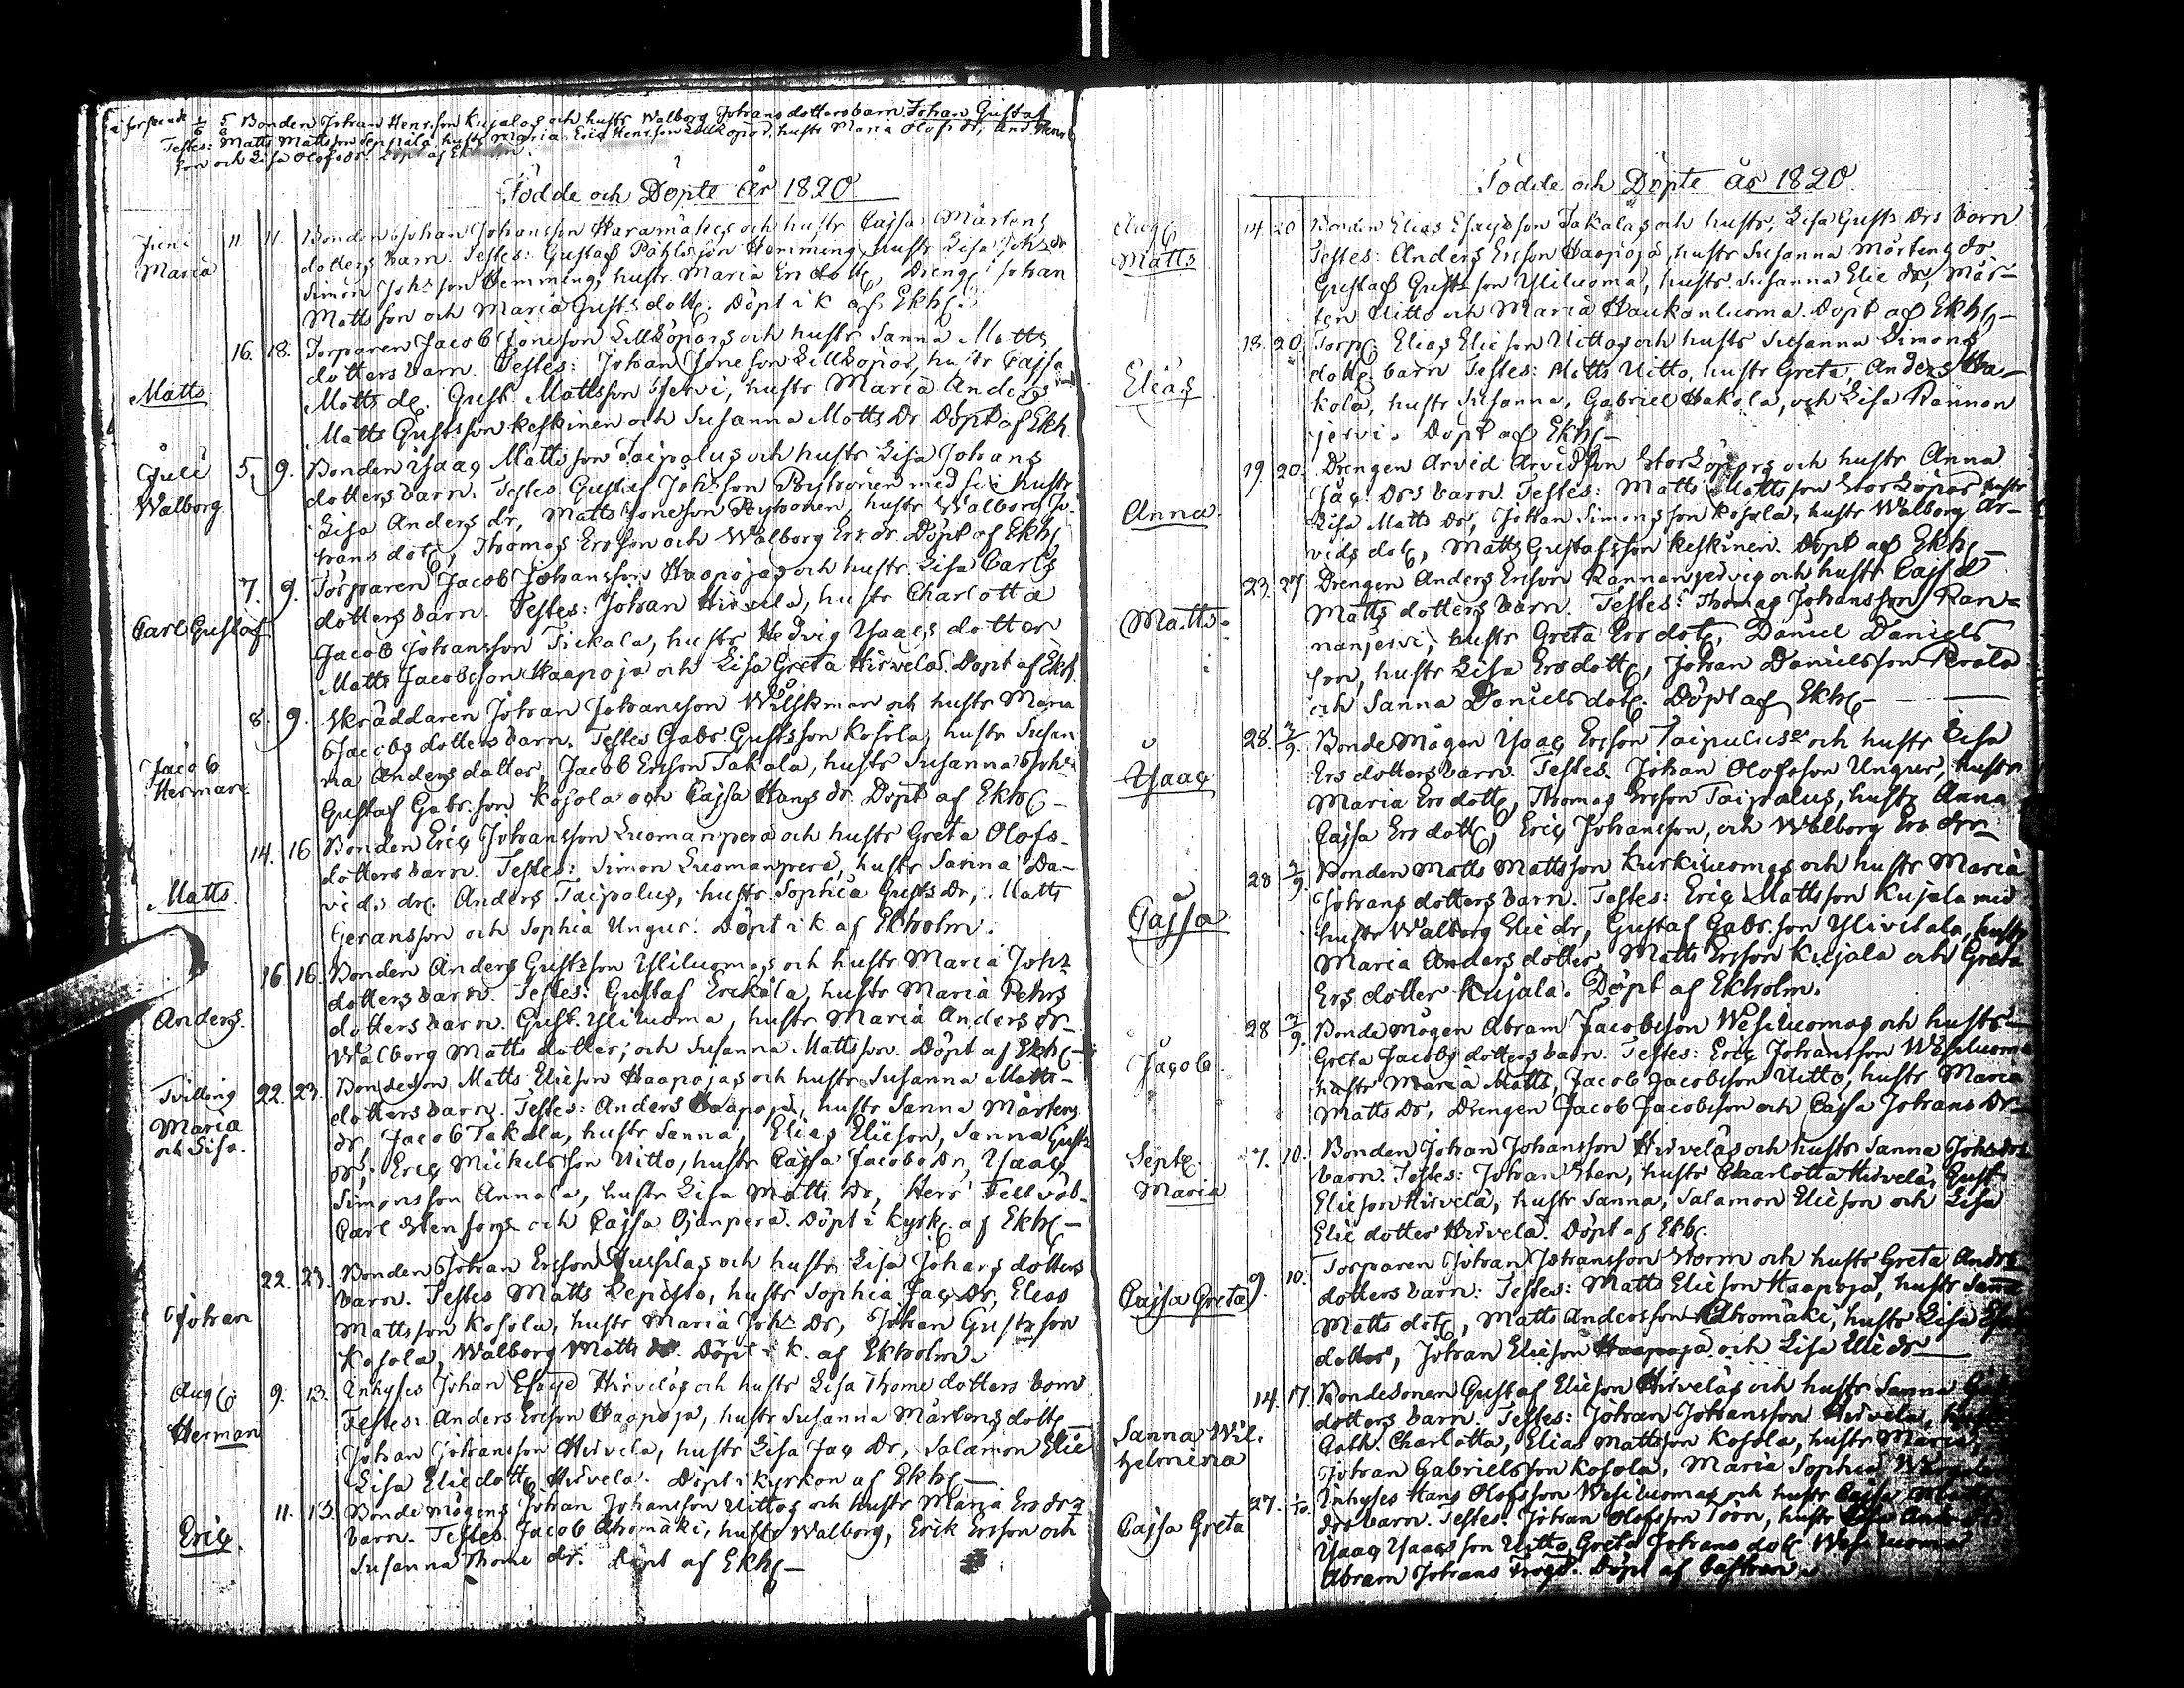 5 Bonden Johan Henr.son Kujalas och hustr Walborg Johans dotters barn Johan Gustaf
Testes: Matts Mattsson Seppälä, hustr Maria. Eric Henr.son Lillköpor, hustr Maria Olofs dr, And. Henr
son och Lisa Olofs dr. Döpt af Ekholm.
Födde och Döpte år 1820
Junii 11. 11. Bonden Johan Johansson Haramäkes och hustr Cajsa Mårtens
Maria dotters barn. Testes: Gustaf Påhlsson Hemming hustr Lisa Johs dr
Simon Johs son Hemming, hustr Maria Ers dott, Dreng Johan
Mattsson och Maria Gusts dott. Döpt i K af Ekh.
16. 18. Torparen Jacob Jöneson Lillköpors och hustr Sanna Matts
dotters barn. Testes: Johan Jöneson Lillköpor, hustr Cajsa
Matts Matts dr. Gust. Mattsson Jervi, hustr Maria Anders
Matts Gustsson Keskinen och Susanna Matts Dr Döpt af Ekh.
Juli 5. 9. Bonden Ysaac Mattsson Taipalus och hustr Lisa Johans
Walborg dotters barn. Testes Gustaf Johs son Rystonen med sin hustr
Lisa Anders dr, Matts Joneson Rystonen, hustr Walborg Jo-
hans dott, Thomas Ersson och Walborg Ers dr. Döpt af Ekh
7. 9. Torparen Jacob Johansson Haapojas och hustr Lisa Carls
Carl Gustaf. dotters barn. Testes: Johan Hirvelä, hustr Charlotta
Jacob Johansson Tickala, hustr Hedvig Ysaacs dotter
Matts Jacobsson Haapoja och Lisa Greta Hirvelä. Döpt af Ekh
8. 9. Skräddaren Johan Johansson Wilskman och hustr Maria
Jacob Jacobs dotters barn. Testes Gabr Gustsson Kosola, hustr Susan
Herman. na Anders dotter, Jacob Ersson Takala, hustr Susanna Johs
Gustaf Gabr.son Kosola och Cajsa Hans dr Döpt af Ekh –
14. 16 Bonden Eric Johansson Luomanperä och hustr Greta Olofs-
dotters barn. Testes: Simon Luomanperä, hustr Sanna Da-
Matts. vids dr. Anders Taipalus, hustr Sophia Gusts Dr, Matts
Göransson och Sophia Ungur. Döpt i K. af Ekholm.
16. 16. Bonden Anders Gustsson Yliluomas och hustr Maria Johs
Anders. dotters barn. Testes: Gustaf Erickälä, hustr Maria Pehrs
dotters barn. Gust. Yliluoma, hustr Maria Anders dr-
Walborg Matts dotter, och Susanna Mattsson. Döpt af Ekh –
Tvilling 22. 23. Bondeson Matts Elieson Haapojas och hustr Susanna Matts-
Maria dotters barn. Testes: Anders Haapoja, hustr Sanna Mårtens
och Lisa. dr, Jacob Takala, hustr Sanna, Elias Elieson, Sanna Gusts
dr, Eric Mickelsson Uitto, hustr Cajsa Jacobs Dr, Ysaac
Simonsson Annala, hustr Lisa Matts Dr, Herr Feltväb-
Carl Stenfors och Cajsa Ojanperä. Döpt i Kyrk. af Ekh –
22. 23. Bonden Johan Ersson Jussilas och hustr Lisa Johans dotters
Johan barn. Testes Matts Lepistö, hustr Sophia Jac Dr, Elias
Mattsson Kosola, hustr Maria Johs Dr, Johan Gustsson
Kosola, Walborg Matts dr. Döpt i K. af Ekholm.
Aug 9. 13. Inhyses Johan Esayæ Hirveläs och hustr Lisa Thome dotters barn
Herman Testes: Anders Ersson Haapoja, hustr Susanna Mårtens dott
Johan Johansson Hirvelä, hustr Lisa Jac Dr, Salamon Elie
Lisa Elie dott Hirvelä. Döpt i Kyrkon af Ekh –
11. 13 Bonde mågens Johan Johansson Uittos och hustr Maria Ers drs
Eric. barn. Testes Jacob Ahomäki, hustr Walborg, Erik Ersson och
Susanna Thome dr. Döpt af Ekh –
Födde och Döpte år 1820.
Aug 14 20 Bonden Elias Esayæson Takalas och hustr, Lisa Gusts Drs barn
Matts Testes: Anders Ersson Haapoja, hustr Susanna Mårtens dr
Gustaf Gustsson Yliluoma, hustr. Susanna Elie dr, Mår-
ten Uitto och Maria Haukanluoma. Döpt af Ekh –
18. 20. Torp. Elias Elieson Uittos och hustr Susanna Simons
Elias dott. barn Testes: Matts Uitto, hustr Greta, Anders Ha-
kola, hustr Susanna, Gabriel Hakola, och Lisa Rannan
jervi. Döpt af Ekh –
19. 20. Drengen Arvid Arvidsson Storköpors och hustr Anna
Anna. Jac. Drs barn. Testes: Matts Mattsson Storköpor hustr
Lisa Matts Dr, Johan Simonsson Kosola, hustr Walborg Ar-
vids dot, Matts Gustafsson Keskinen. Döpt af Ekh –
23. 27 Drengen Anders Ersson Rannanjervis och hustr Cajsa
Matts. Matts dotters barn. Testes: Thomas Johansson Ran-
nanjervi, hustr Greta Ers dott, Daniel Daniels
son, hustr Lisa Ers dott, Johan Danielsson Perälä
och Sanna Daniels dott. Döpt af Ekh –
28. 3/9. Bonde Mågen Ysaac Ersson Taipaluse och hustr Lisa
Ysaac Ers dotters barn. Testes. Johan Olofsson Ungur, hustr
Maria Ers dott, Thomas Ersson Taipalus, hustr Anna
Cajsa Ers dott, Eric Johansson, och Walborg Ers dr
28 3/9. Bonden Matts Mattsson Kurkiluomas och hustr Maria
Cajsa Johans dotters barn. Testes: Eric Mattsson Kujala med
hustr Walborg Elie dr, Gustaf Gabr.son Ylivitala, hustr
Maria Anders dotter, Matts Ersson Kujala och Greta
Ers dotter Kujala. Döpt af Ekholm.
28 3/9. Bonde mågen Abram Jacobsson Wesiluomas och hustr
Jacob. Greta Jacobs dotters barn. Testes: Eric Johansson Wesiluoma
hustr Maria Matts, Jacob Jacobsson Uitto, hustr Maria
Matts Dr, Drengen Jacob Jacobsson och Cajsa Johans Dr
Sept 7. 10. Bonden Johan Johansson Hirveläs och hustr Sanna Johs drs
Maria barn. Testes: Johan Sten, hustr Charlotta Hirvelä, Gust
Elieson Hirvelä, hustr Sanna, Salamon Elieson och Lisa
Elie dotter Hirvelä. Döpt af Ekh.
9. 10. Torparen Johan Johansson Storm och hustr Greta Anders
Cajsa Greta dotters barn: Testes: Matts Elieson Haapoja, hustr Sanna
Matts dott, Matts Andersson Ahomäki, hustr Lisa
dotter, Johan Elieson Haapoja och Lisa Elie dr
14. 17. Bondesonen Gustaf Elieson Hirveläs och hustr Sanna
Sanna Wil- dotters barn. Testes: Johan Johansson Hirvelä,
helmina Cath. Charlotta, Elias Mattsson Kosola, hustr Maria,
Johan Gabrielsson Kosola, Maria Sophia
27. 1/10. Inhyses Hans Olofsson Wesiluomas och hustr Cajsa
Cajsa Greta drs barn. Testes. Johan Olofsson Törn, hustr
Ysaac Ysaacsson Uitto, Greta Johans dott Wesiluoma
Abram Johans Döpt af Castren.